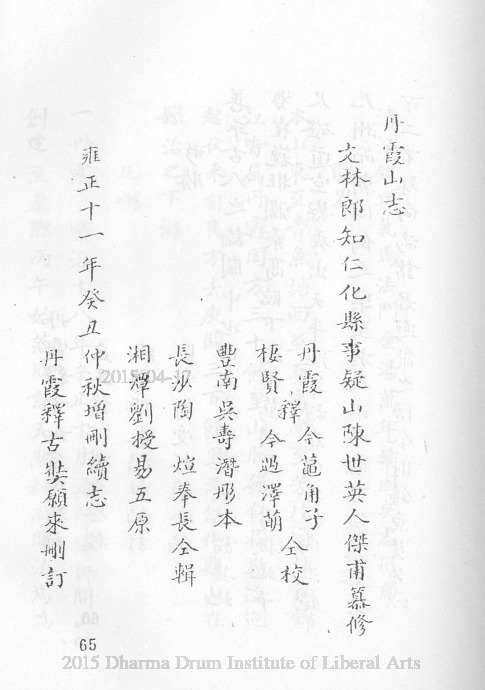 丹霞山志
文林郎知仁化縣事疑山陳世英人傑甫纂修
丹霞釋今黽角子仝校
棲賢釋今遇澤萌
豐南吳壽潛彤本
長沙陶煊奉長仝輯
湘潭劉授易五原
雍正十一年癸丑仲秋增刪續志
丹霞釋古奘願來刪訂
65
2015-04-17
2015 Dharma Drum Institute of Liberal Arts